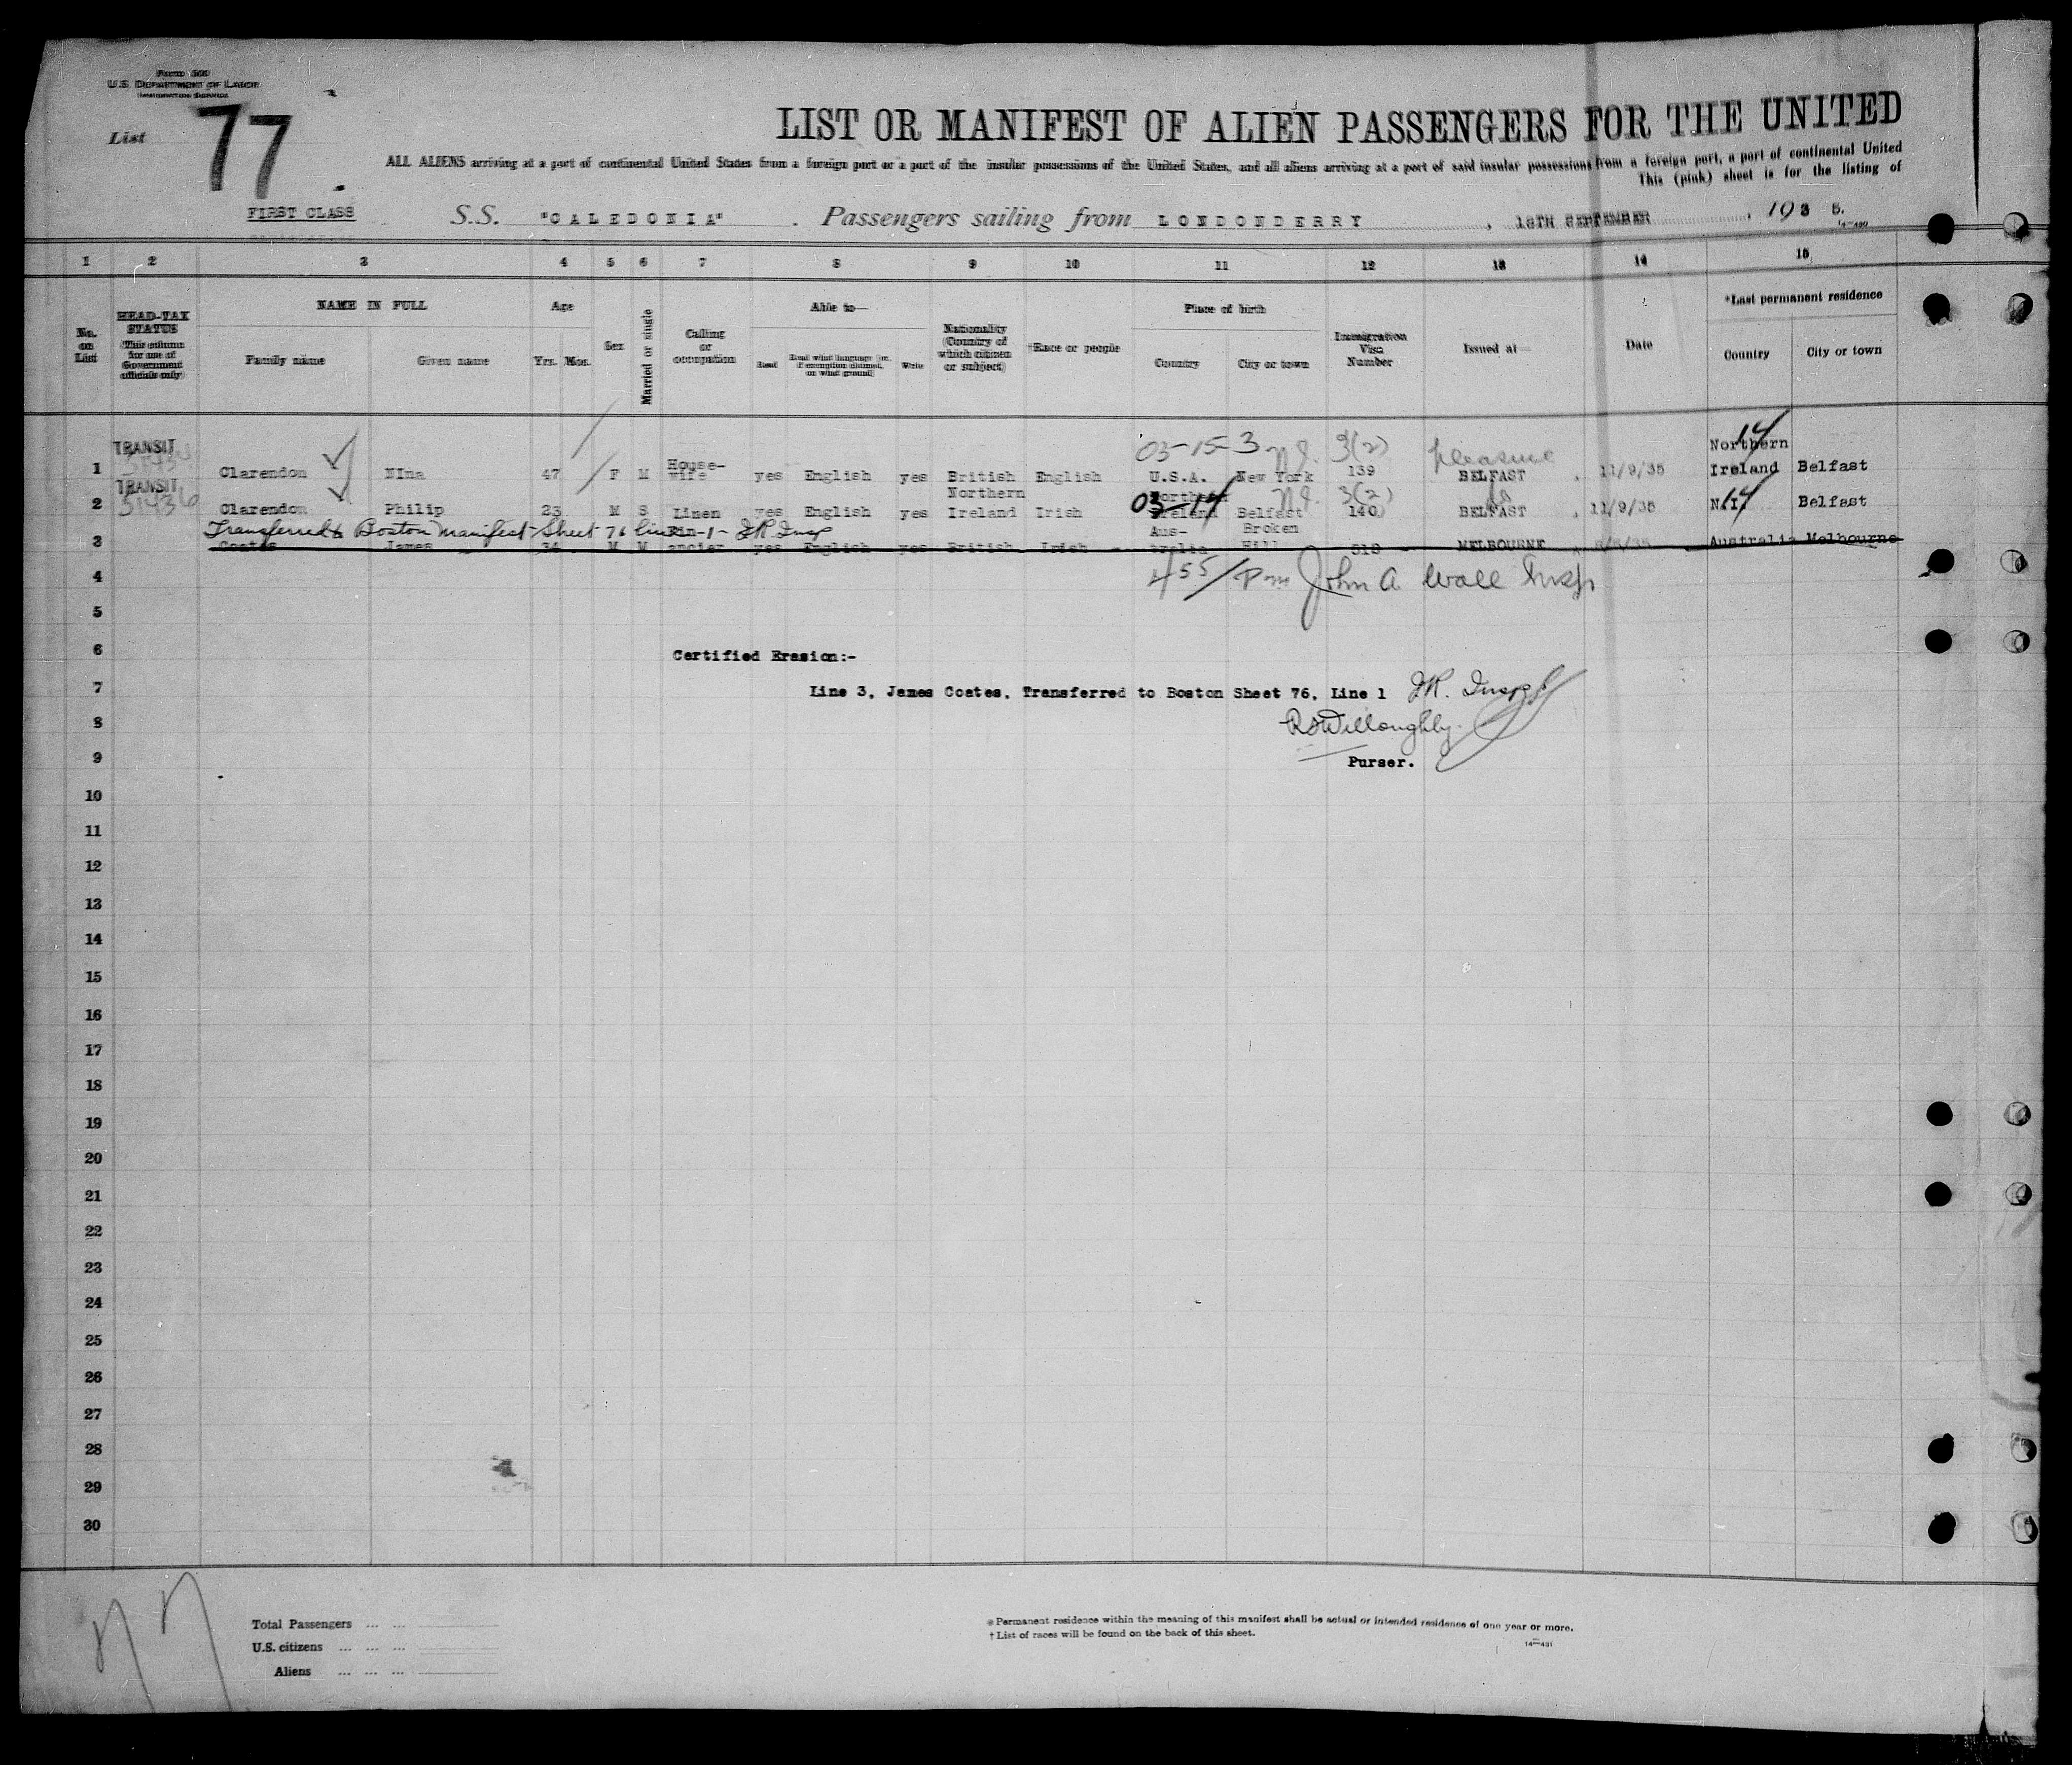 Form 500
U.S. DEPARTMENT OF LABOR
IMMIGRATION SERVICE
List 77
LIST OR MANIFEST OF ALIEN PASSENGERS FOR THE UNITED
ALL ALIENS arriving at a port of continental United States from a foreign port or a port of the insular possessions of the United States, and all aliens arriving at a port of said insular possessions from a foreign port, a port of continental United
This (pink) sheet is for the listing of
FIRST CLASS S.S. "CALEDONIA" . Passengers sailing from LONDONDERRY , 18TH SEPTEMBER , 193 5.
14—430
1 2 3 4 5 6 7 8 9 10 11 12 13 14 15
No. on List
HEAD-TAX STATUS (This column for use of Government officials only)
NAME IN FULL
Family name Given name
Age
Yrs. Mos.
Sex
Married or single
Calling or occupation
Able to—
Read Read what language [or, if exemption claimed, on what ground] Write
Nationality (Country of which citizen or subject)
†Race or people
Place of birth
Country City or town
Immigration Visa Number
Issued at—
Date
*Last permanent residence
Country City or town
03-15-3 3(2) pleasure 14
1 TRANSIT Clarendon NIna 47 F M House-wife yes English yes British English U.S.A. New York 139 BELFAST , 11/9/35 Northern Ireland Belfast
03-14 3(2) 14
2 TRANSIT Clarendon Philip 23 M S Linen yes English yes Northern Ireland Irish Northern Ireland Belfast 140 BELFAST , 11/9/35 N.I. Belfast
Transferred to Boston Manifest Sheet 76 line 1
3 Coates James 34 M M Fin-ancier yes English yes British Irish Aus-tralia Broken Hill 518 MELBOURNE Australia Melbourne
4 455/ Pm John A Wall Insp
5
6 Certified Erasion:-
7 Line 3, James Coates, Transferred to Boston Sheet 76, Line 1
8 Willoughby.
9 Purser.
10
11
12
13
14
15
16
17
18
19
20
21
22
23
24
25
26
27
28
29
30
Total Passengers ... ...
U.S. citizens ... ... ...
Aliens ... ... ...
*Permanent residence within the meaning of this manifest shall be actual or intended residence of one year or more.
†List of races will be found on the back of this sheet.
14—431